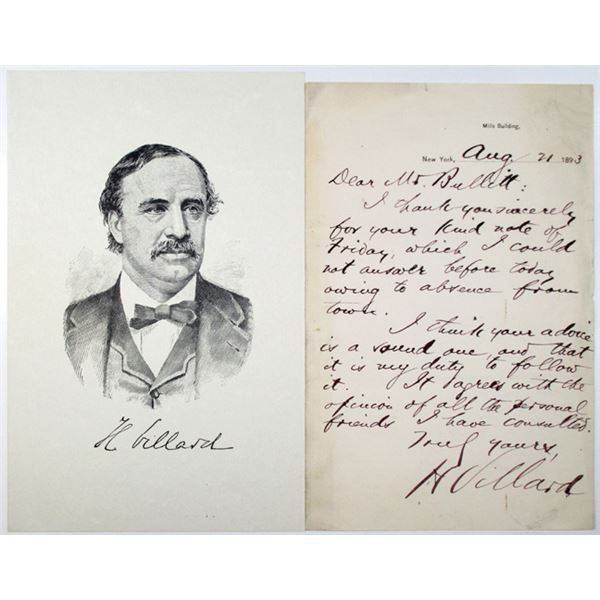 H Villard
Mills Building,
New York, Aug 21 1893
Dear Mr. Bullitt:
I thank you sincerely
for your kind note of
Friday, which I could
not answer before today
owing to absence from
town.
I think your advice
is a sound one, and that
it is my duty to follow
it. It agrees with the
opinion of all the personal
friends I have consulted.
Truly yours,
H Villard